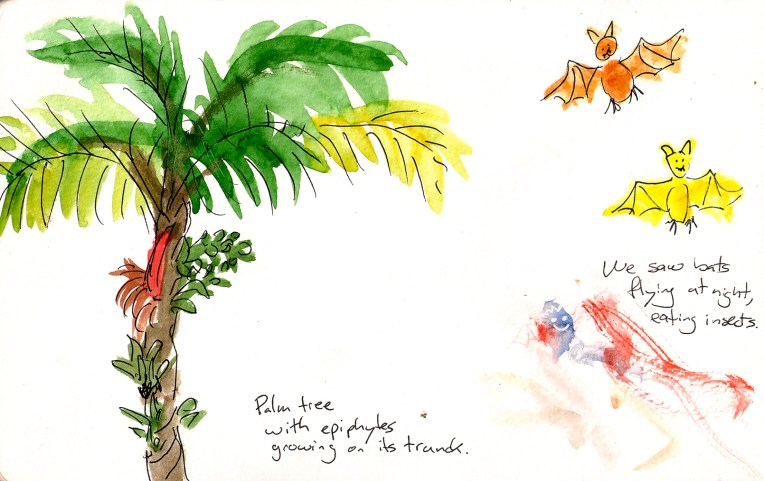 We saw bats
flying at night,
eating insects.
Palm tree
with epiphytes
growing on its trunck.